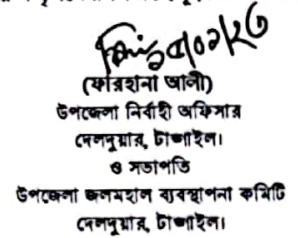 (ফারহানা আলী)
উপজেলা নির্বাহী অফিসার
দেলদুয়ার, টাঙ্গাইল।
ও সভাপতি
উপজেলা জলমহাল ব্যবস্থাপনা কমিটি
দেলদুয়ার, টাঙ্গাইল।